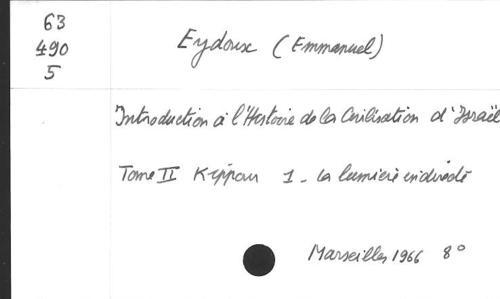 63
490
5
Eydoux (Emmanuel)
Introduction à l'Histoire de la Civilisation d'Israël
Tome II Kippour 1 - La lumière indirecte
Marseille 1966 8°